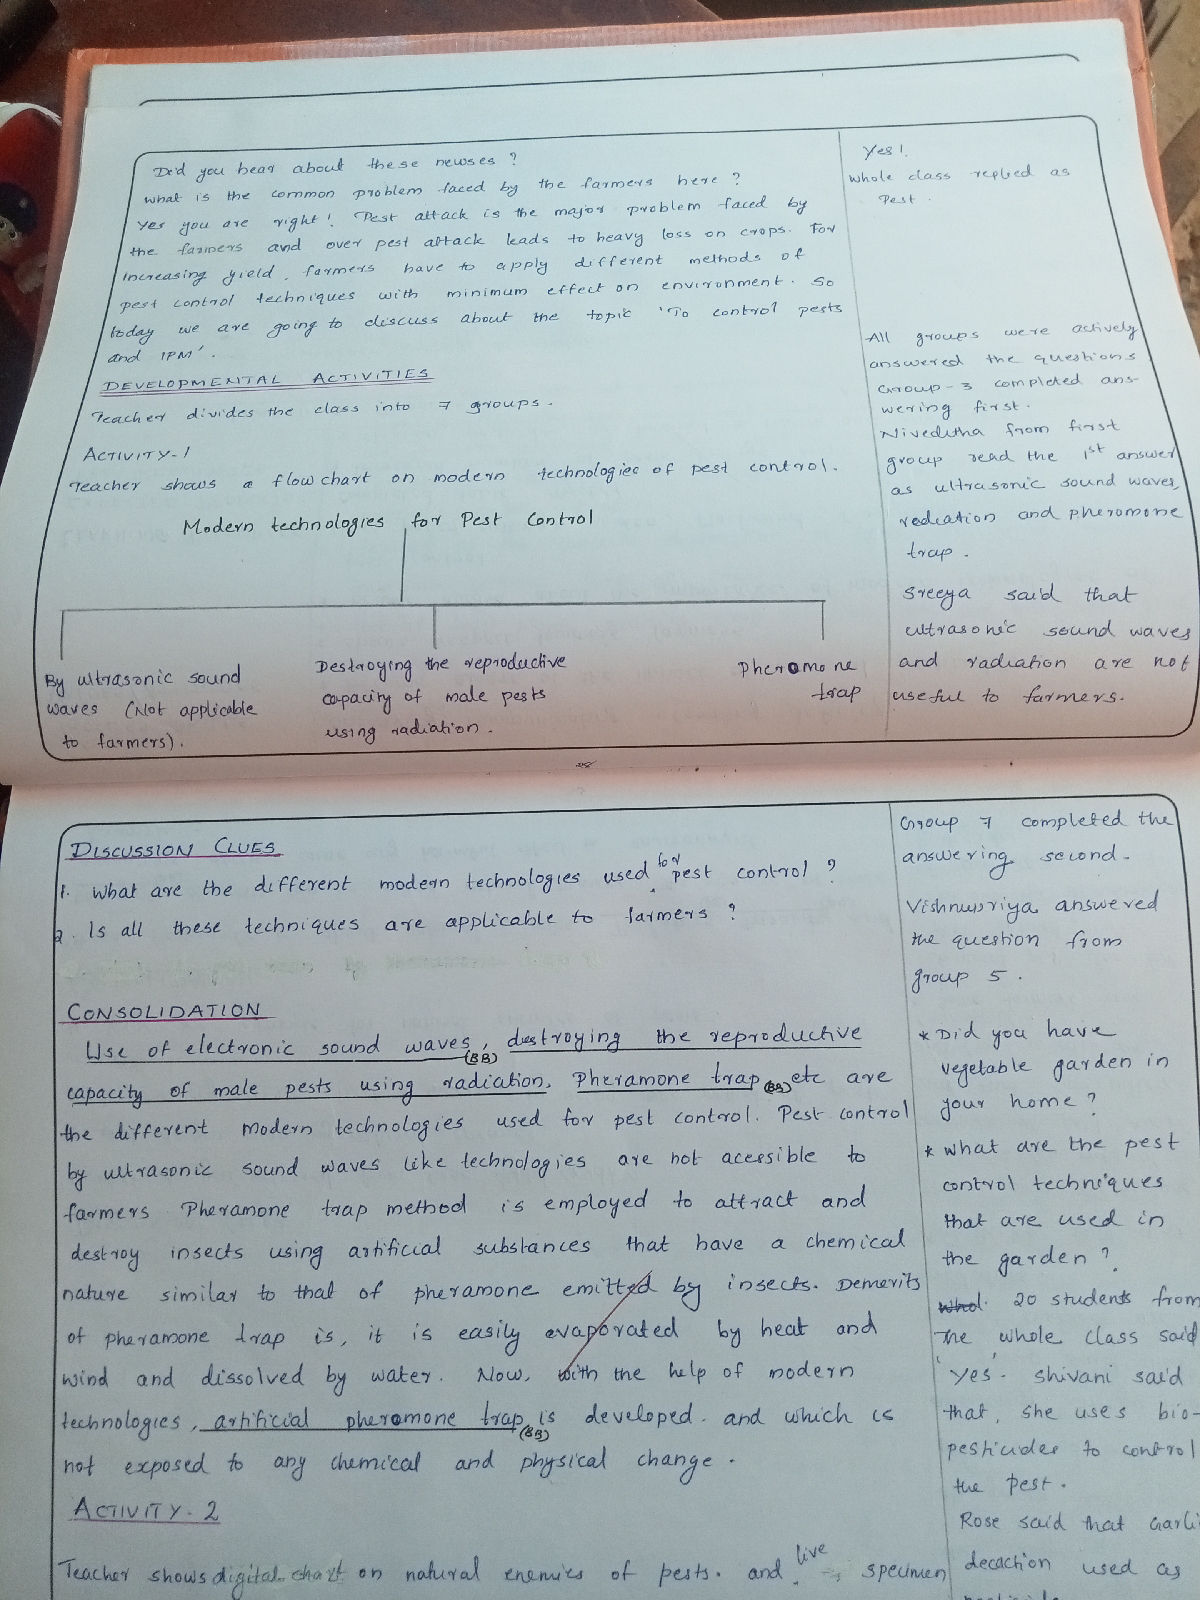 Did you hear about these newses ?
what is the common problem faced by the farmers here ?
Yes you are right ! Pest attack is the major problem faced by
the farmers and over pest attack leads to heavy loss on crops. For
increasing yield, farmers have to apply different methods of
pest control techniques with minimum effect on environment. So
today we are going to discuss about the topic 'To control pests
and IPM'.
DEVELOPMENTAL ACTIVITIES
Teacher divides the class into 7 groups.
ACTIVITY-1
Teacher shows a flow chart on modern technologies of pest control.
Modern technologies for Pest Control
By ultrasonic sound
waves (Not applicable
to farmers).
Destroying the reproductive
capacity of male pests
using radiation.
Pheromone
trap
Yes!
Whole class replied as
Pest.
All groups were actively
answered the questions
Group-3 completed ans-
wering first.
Niveditha from first
group read the 1st answer
as ultrasonic sound waves,
rediation and pheromone
trap.
Sreeya said that
ultrasonic sound waves
and radiation are not
useful to farmers.
DISCUSSION CLUES
1. What are the different modern technologies used for pest control ?
2. Is all these techniques are applicable to farmers ?
CONSOLIDATION
Use of electronic sound waves, destroying the reproductive
(BB)
capacity of male pests using radiation, Pheramone trap (BB) etc are
the different modern technologies used for pest control. Pest control
by ultrasonic sound waves like technologies are not acessible to
farmers Pheramone trap method is employed to attract and
destroy insects using artificial substances that have a chemical
nature similar to that of pheramone emitted by insects. Demerits
of pheramone trap is, it is easily evaporated by heat and
wind and dissolved by water. Now, with the help of modern
technologies, artificial pheromone trap is developed. and which is
(BB)
not exposed to any chemical and physical change.
ACTIVITY-2
Teacher shows digital chart on natural enemies of pests. and live specimen
Group 7 completed the
answering second.
Vishnupriya answered
the question from
group 5.
* Did you have
vegetable garden in
your home?
* what are the pest
control techniques
that are used in
the garden?
20 students from
the whole class said
'yes'. Shivani said
that, she uses bio-
pesticides to control
the pest.
Rose said that Garli
decaction used as